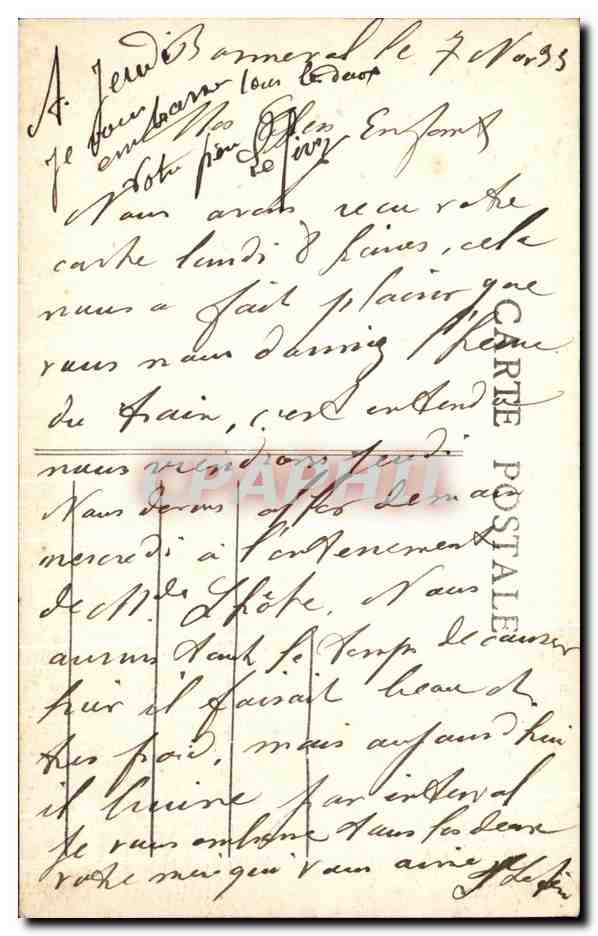 Bonneval le 7 Nov 33
A Jeudi
Je vous
embrasse tous les deux
Votre père
Mes Chers Enfants
Nous avons recu votre
carte lundi 8 heures, cela
nous a fait plaisir que
vous nous donniez l'heure
du train, c'est entendu
nous viendrons jeudi
Nous devons aller demain
mercredi à l'enterrement
de Mde Lhôte. Nous
aurons tout le temps de causer
hier il faisait beau et
tres froid, mais aujourd'hui
il bruine par interval
Je vous embrasse tous les deux
votre mère qui vous aime
CARTE POSTALE
CPAPHIL